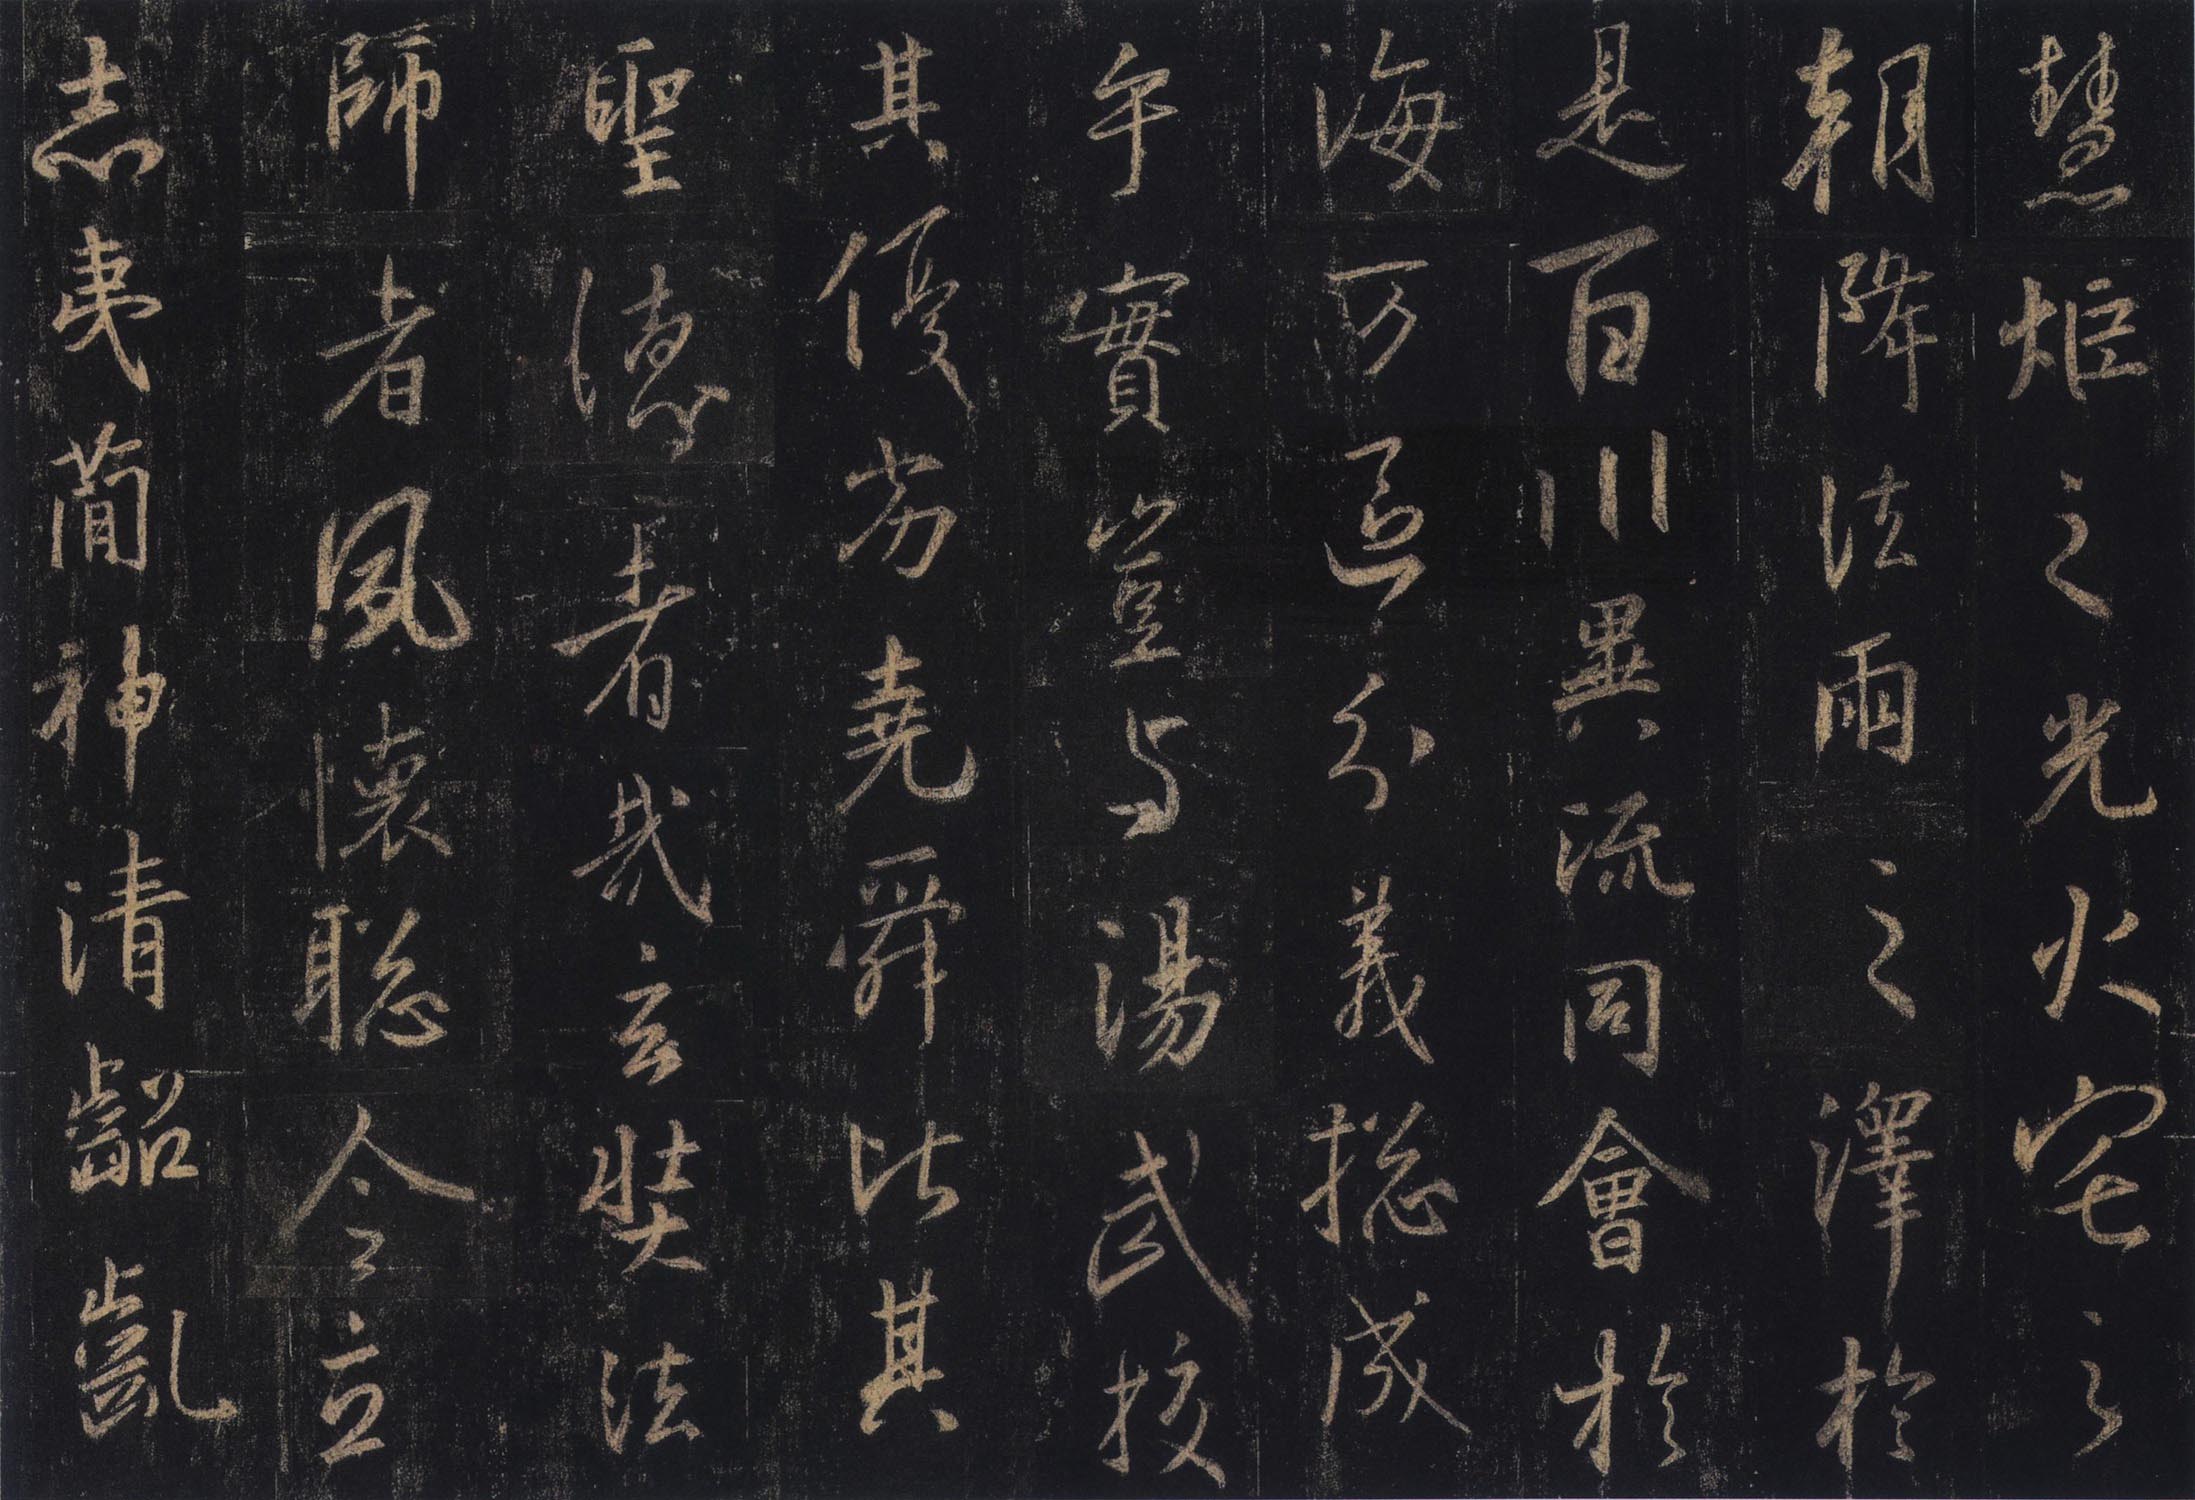 慧炬之光火宅之
朝降法雨之澤於
是百川異流同會於
海万區分義捴成
乎實豈与湯武挍
其優劣堯舜比其
聖德者哉玄奘法
師者夙懷聡令立
志夷簡神清齠齓